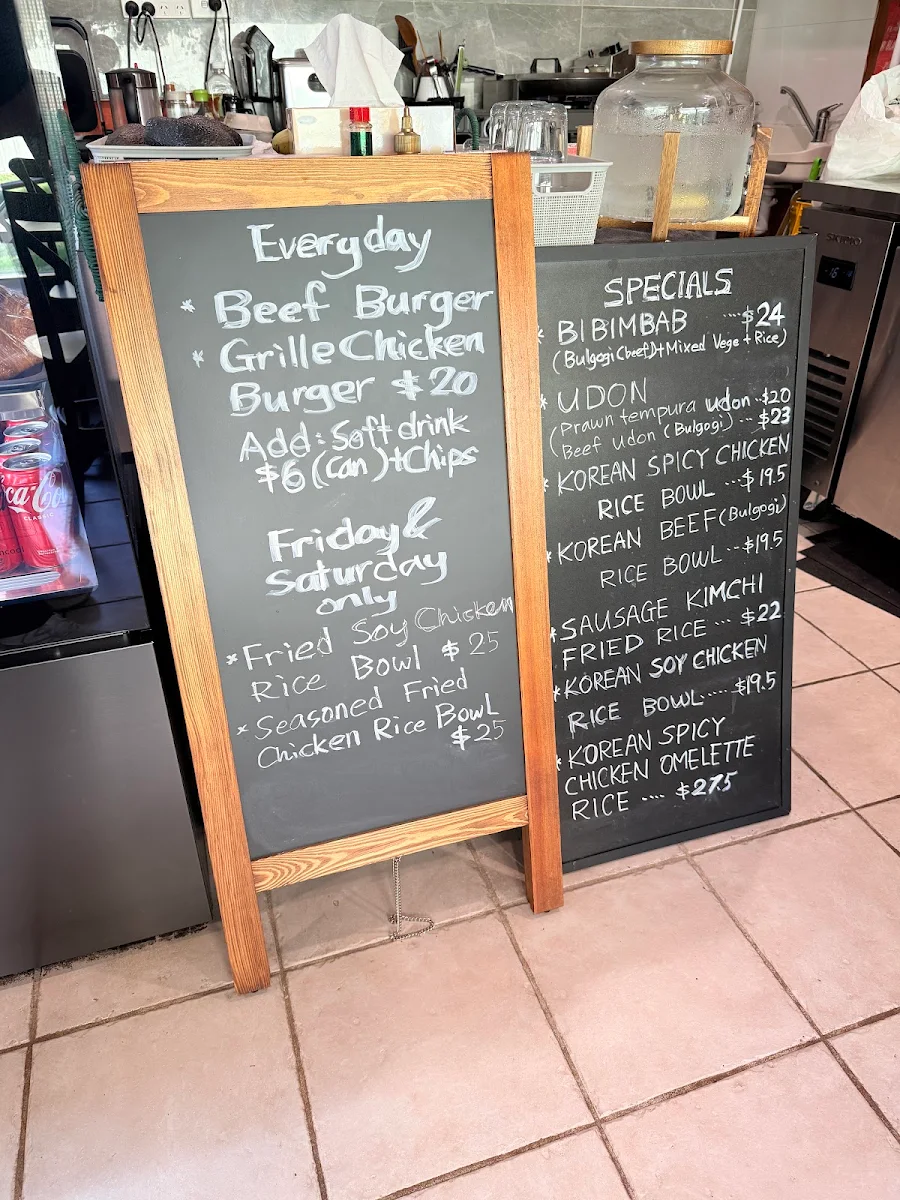 Everyday
* Beef Burger
* Grille Chicken
Burger $20
Add: Soft drink
$6 (can)+Chips
Friday &
Saturday
only
* Fried Soy Chicken
Rice Bowl $25
* Seasoned Fried
Chicken Rice Bowl
$25
SPECIALS
* BIBIMBAB ····$24
(Bulgogi(beef)+Mixed Vege + Rice)
* UDON
(Prawn tempura udon ··$20
(Beef udon (Bulgogi) ··· $23
* KOREAN SPICY CHICKEN
RICE BOWL ···$19.5
* KOREAN BEEF (Bulgogi)
RICE BOWL ···$19.5
* SAUSAGE KIMCHI
FRIED RICE ··· $22
* KOREAN SOY CHICKEN
RICE BOWL ···· $19.5
* KOREAN SPICY
CHICKEN OMELETTE
RICE ···· $27.5
SKYPRO
Coca-Cola
CLASSIC